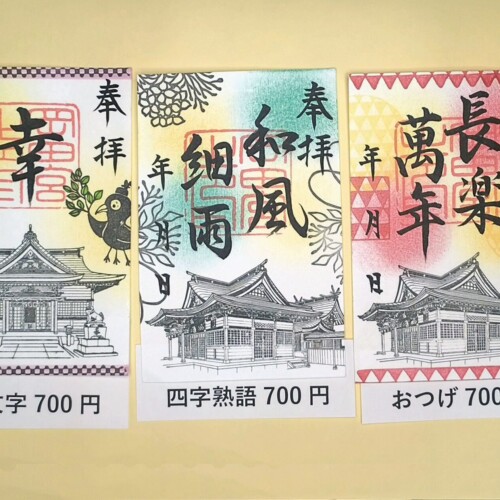 奉拝
幸
文字 700 円
奉拝
和風
細雨
年 月 日
四字熟語 700 円
長楽
萬年
年 月 日
おつげ 700